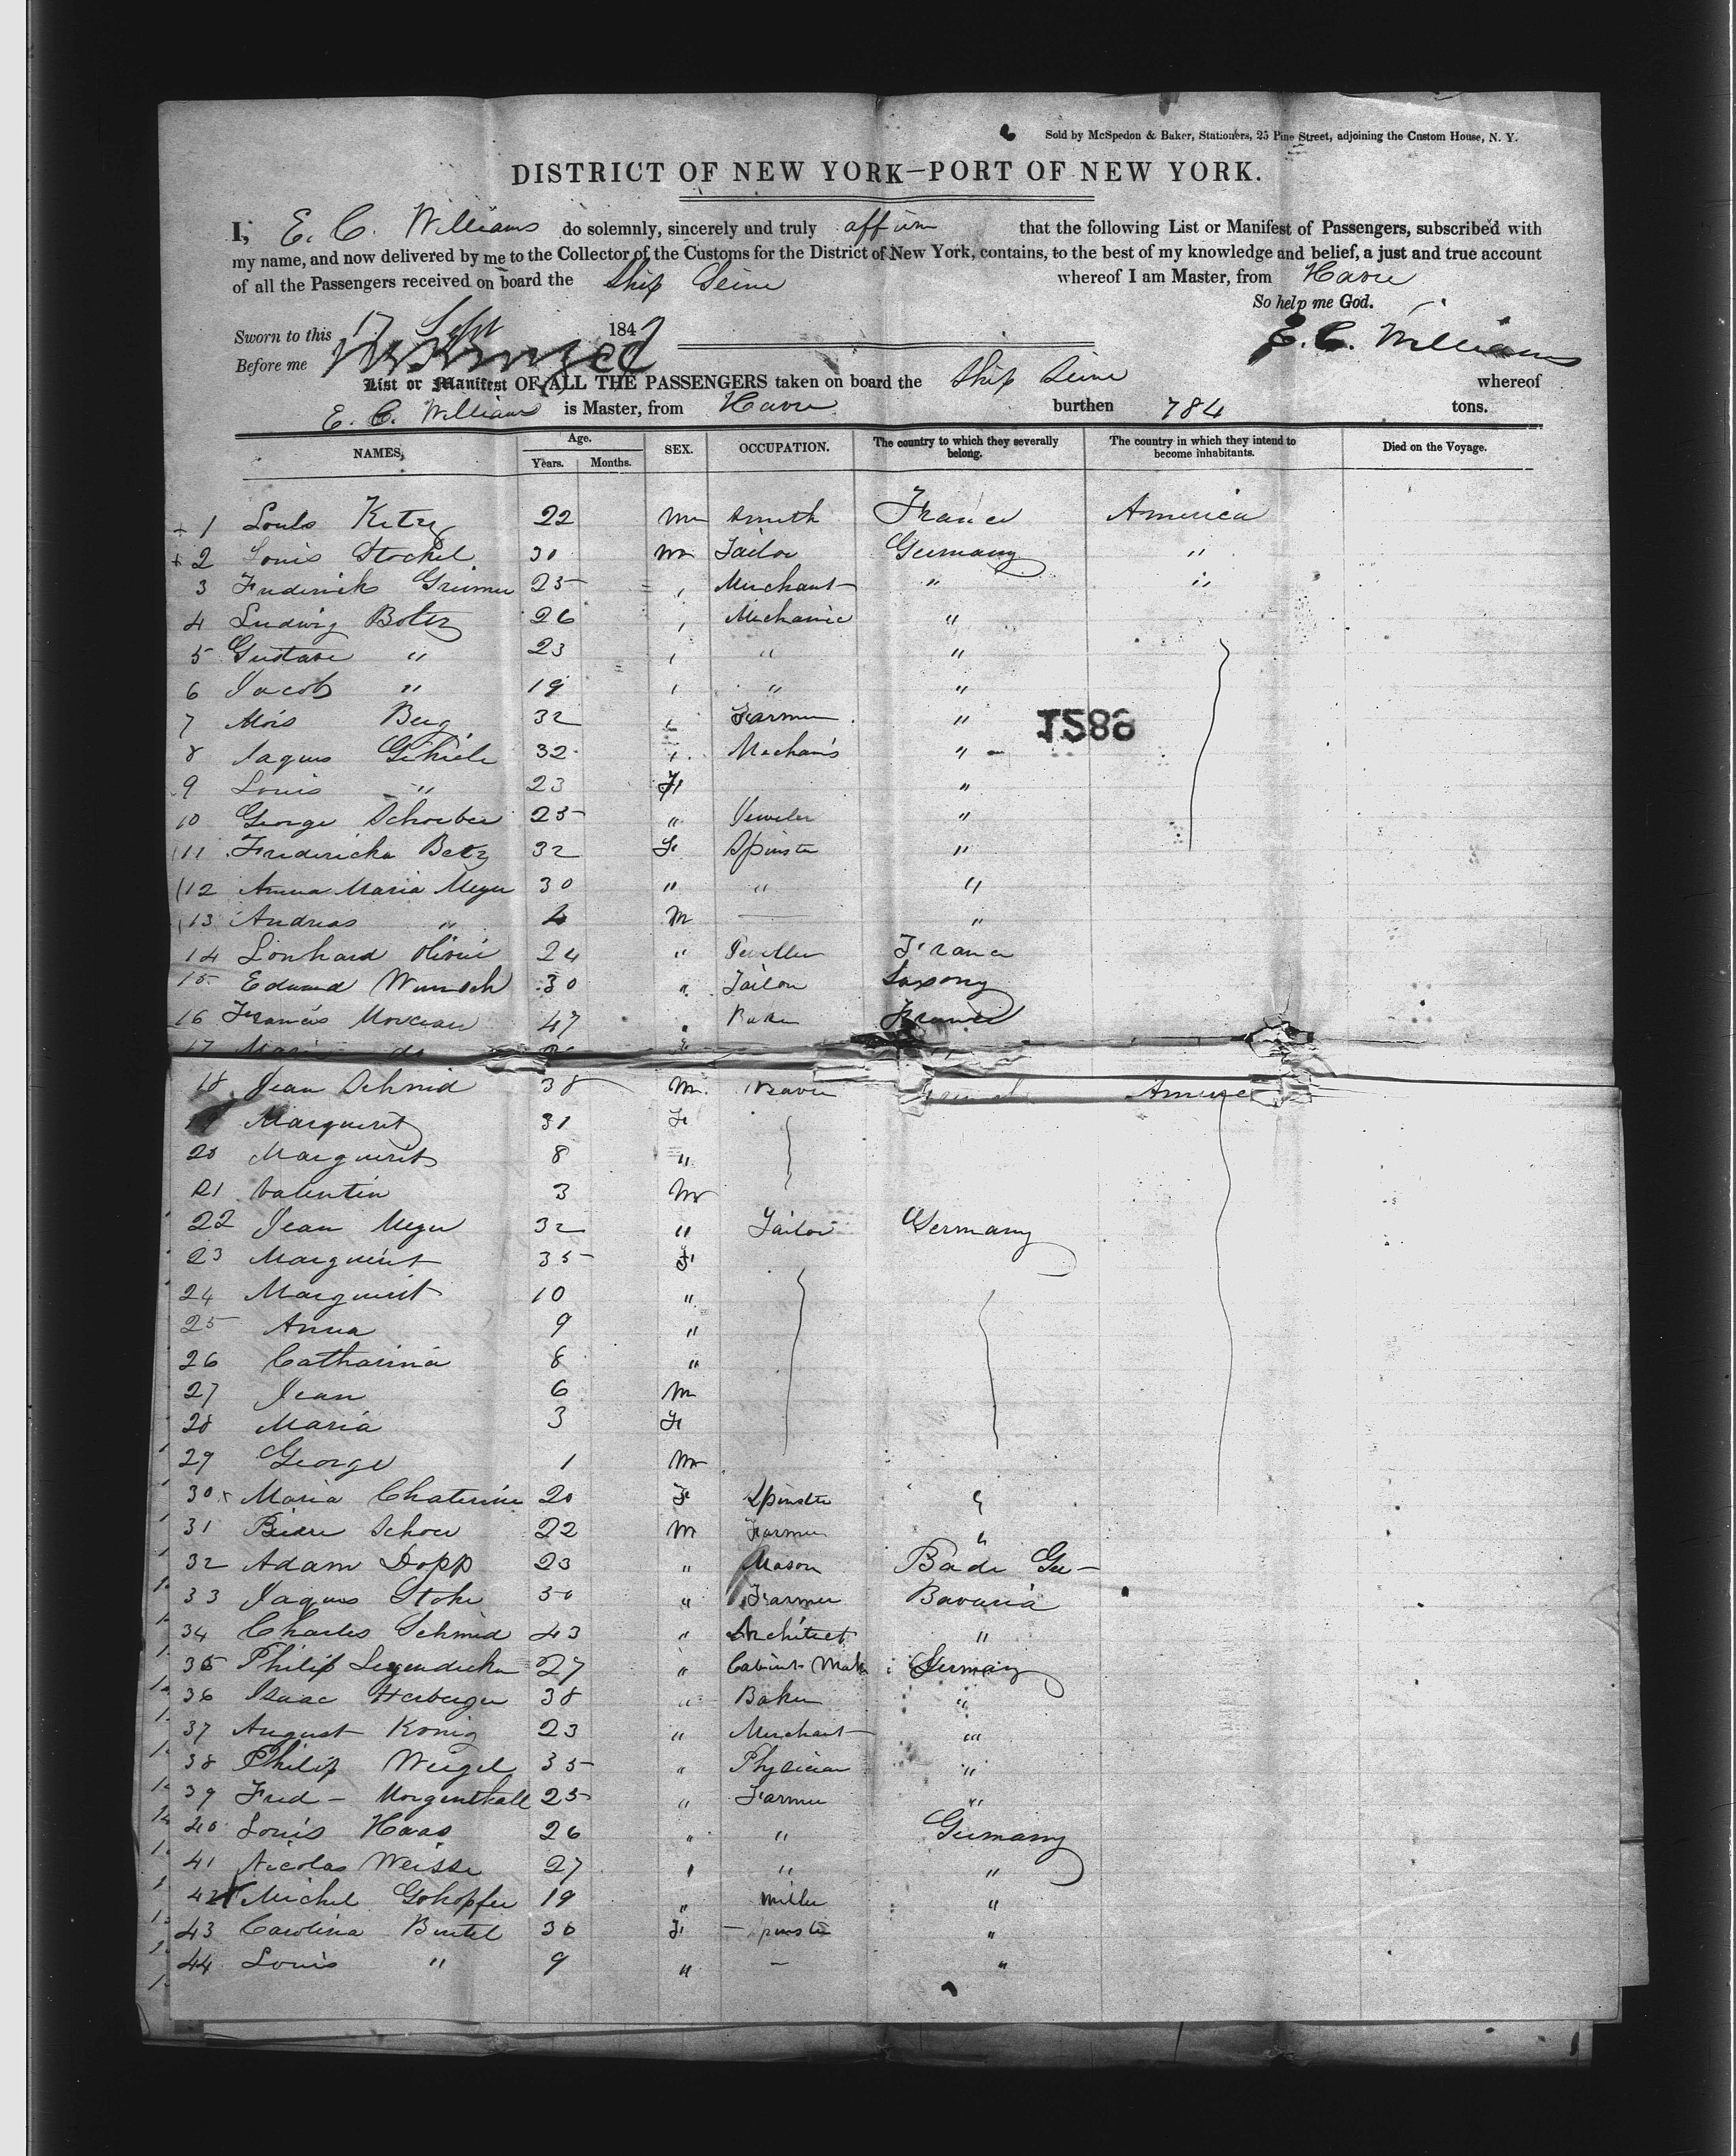 Sold by McSpedon & Baker, Stationers, 25 Pine Street, adjoining the Custom House, N. Y.
DISTRICT OF NEW YORK—PORT OF NEW YORK.
I, E. C. Williams do solemnly, sincerely and truly affirm that the following List or Manifest of Passengers, subscribed with
my name, and now delivered by me to the Collector of the Customs for the District of New York, contains, to the best of my knowledge and belief, a just and true account
of all the Passengers received on board the Ship Seine whereof I am Master, from Havre
So help me God.
Sworn to this 17 Sept 1849
E. C. Williams
Before me
List or Manifest OF ALL THE PASSENGERS taken on board the Ship Seine whereof
E. C. Williams is Master, from Havre burthen 784 tons.
NAMES, Age. Years. Months. SEX. OCCUPATION. The country to which they severally belong. The country in which they intend to become inhabitants. Died on the Voyage.
+ 1 Louis 22 M Smith France America
+ 2 Louis Stockel 30 M Tailor Germany "
3 Frederick Grimer 25 Merchant " "
4 Ludwig Boltz 26 Mechanic "
5 Gustave " 23 " "
6 Jacob " 19 " "
7 Alois Berg 32 Farmer "
1588
8 Jaques 32 Mechanis "
9 Louis " 23 F "
10 George Schoeber 25 " Jeweler "
11 Fredericka Betz 32 F Spinster "
12 Anna Maria Meyer 30 " " "
13 Andreas " 4 M — "
14 Lonhard Olivier 24 " Jeweller France
15 Edward Wunsch 30 " Tailor Saxony
16 Francis Moreau 47 Baker France
17 Maria do
18 Jean Schmid 38 M America
Marguerit 31 F
20 Marguerit 8 "
21 Valentin 3 M
22 Jean Meyer 32 " Tailor Germany
23 Marguerit 35 F
24 Marguerit 10 "
25 Anna 9 "
26 Catharina 8 "
27 Jean 6 M
28 Maria 3 F
29 George 1 M
30 x Maria Chaterine 20 F Spinster "
31 Schoer 22 M Farmer "
32 Adam Dopp 23 " Mason Bade Ger—
33 Jaques Stohr 30 " Farmer Bavaria
34 Charles Schmid 43 " Architect "
35 Philip 27 " Cabinet Mak Germany
36 Isaac Herberger 38 " Baker "
37 August Konig 23 " Merchant "
38 Philip Weigel 35 " Physician "
39 Fred— Morgenthall 25 " Farmer "
40 Louis Haas 26 " " Germany
41 Nicolas Weisse 27 " "
42 Michel Gohopfer 19 " Miller "
43 Carolina Bentel 30 F — Spinster "
44 Louis " 9 " — "